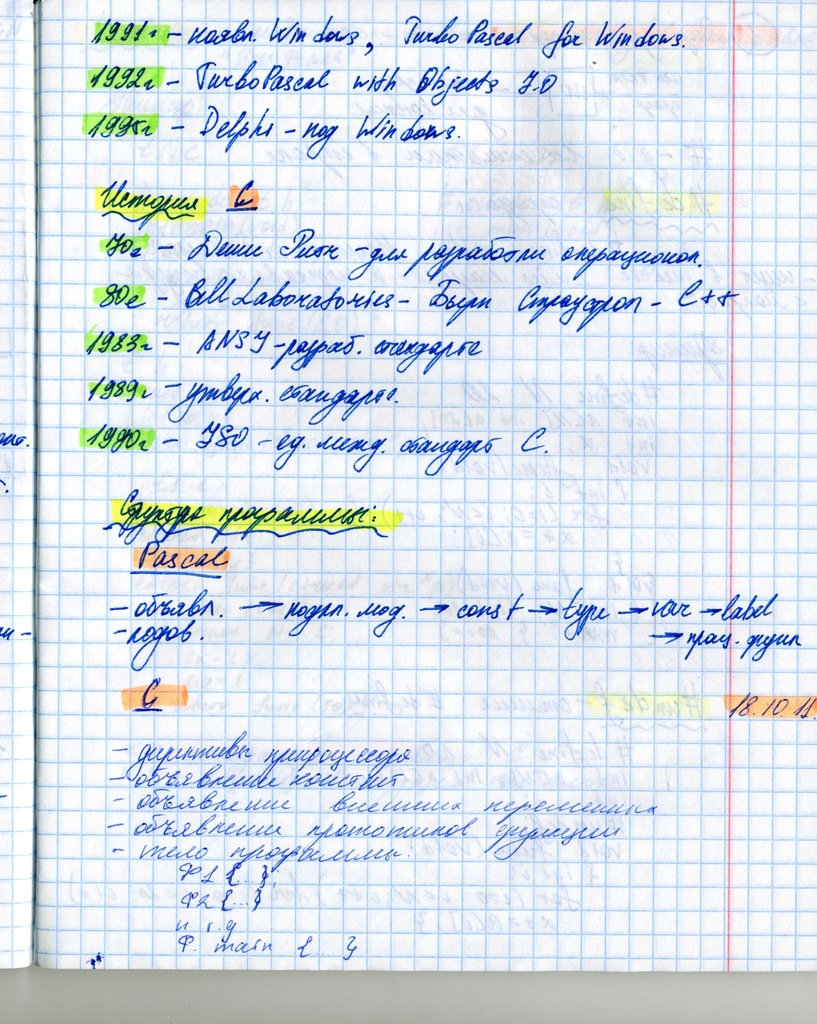 1991г - появл. Windows, Turbo Pascal for Windows.
1992г - Turbo Pascal with Objects 7.0
1995г - Delphi - под Windows.
История C
70е - Денис Ритчи - для разработки операционн.
80е - Bell Laboratories - Бьерн Страуструп - C++
1983г - ANSI - разраб. стандарта
1989г - утверж. стандарта.
1990г - ISO - ед. межд. стандарт C.
Структура программы:
Pascal
- объявл. → подкл. мод. → const → type → var → label
→ проц. функ
C
18.10.11.
- директивы препроцессора
- объявление констант
- объявление внешних переменных
- объявление прототипов функций
- тело программы.
Ф1 {...};
Ф2 {...}
и т.д
Ф. main {...}